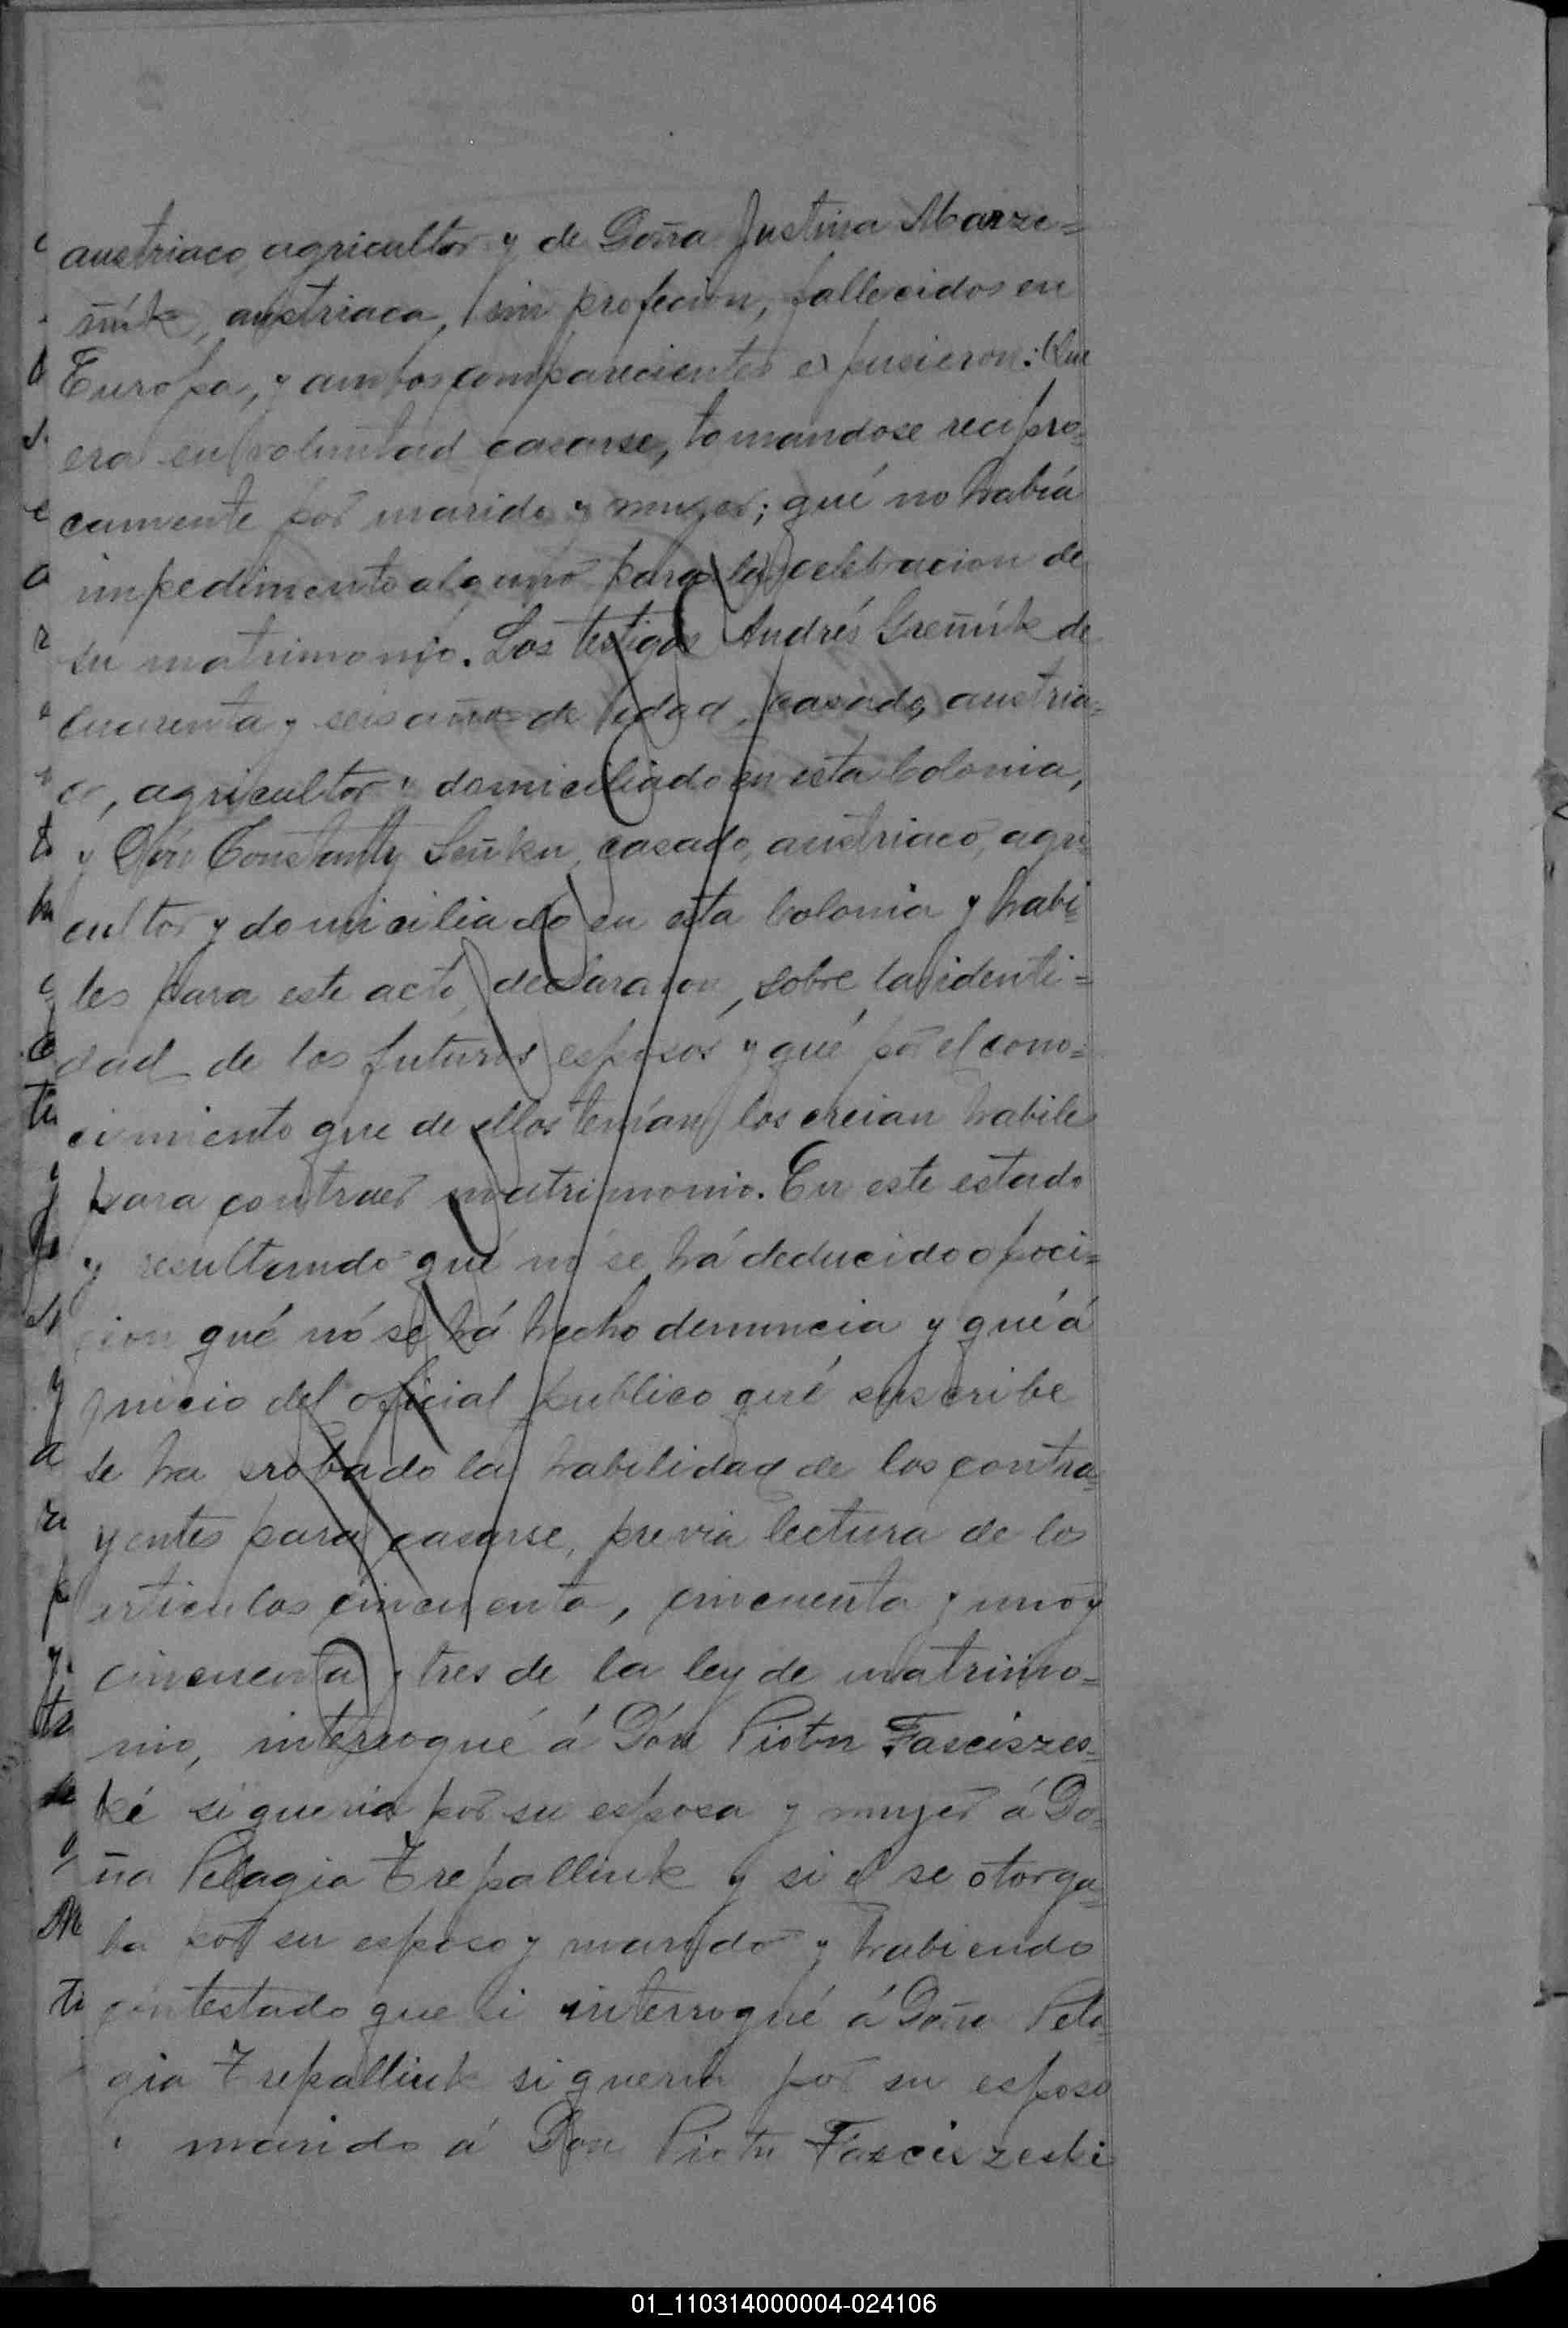 austriaco, agricultor y de Doña Justina Marze=
ñík, austriaca, sin profecion, fallecidos en
Europa, y ambos comparecientes expusieron: Que
era su voluntad casarse, tomandose recipro=
camente por marido y mujer; qué no había
impedimento alguno para la celebracion de
su matrimonio. Los testigos Andrés Greñúk de
cuarenta y seis años de edad, casado, austria=
co, agricultor y domiciliado en esta Colonia,
y Don Constanty casado, austriaco, agri=
cultor y domiciliado en esta Colonia y habi=
les para este acto, declararon, sobre la identi=
dad de los futuros esposos y qué por el cono=
cimiento que de ellos tenían los creian habiles
para contraer matrimonio. En este estado
y resultando qué no se há deducido opoci=
cion qué nó se há hecho denuncia y qué á
juicio del oficial publico qué suscribe
se ha probado la habilidad de los contra=
yentes para casarse, previa lectura de los
articulos cincuenta, cincuenta y uno y
cincuenta y tres de la ley de matrimo=
nio, interrogué á Dón Piotr Fasciszes=
ké si queria por su esposa y mujer á Do=
ña Pelagia Trepalliuk y si el se otorga=
ba por su esposo y marido y habiendo
contestado que si interrogué á Doña Pela=
gia Trepalliuk si queria por su esposo
y marido á Don Piotr Fasciszeski
01_110314000004-024106